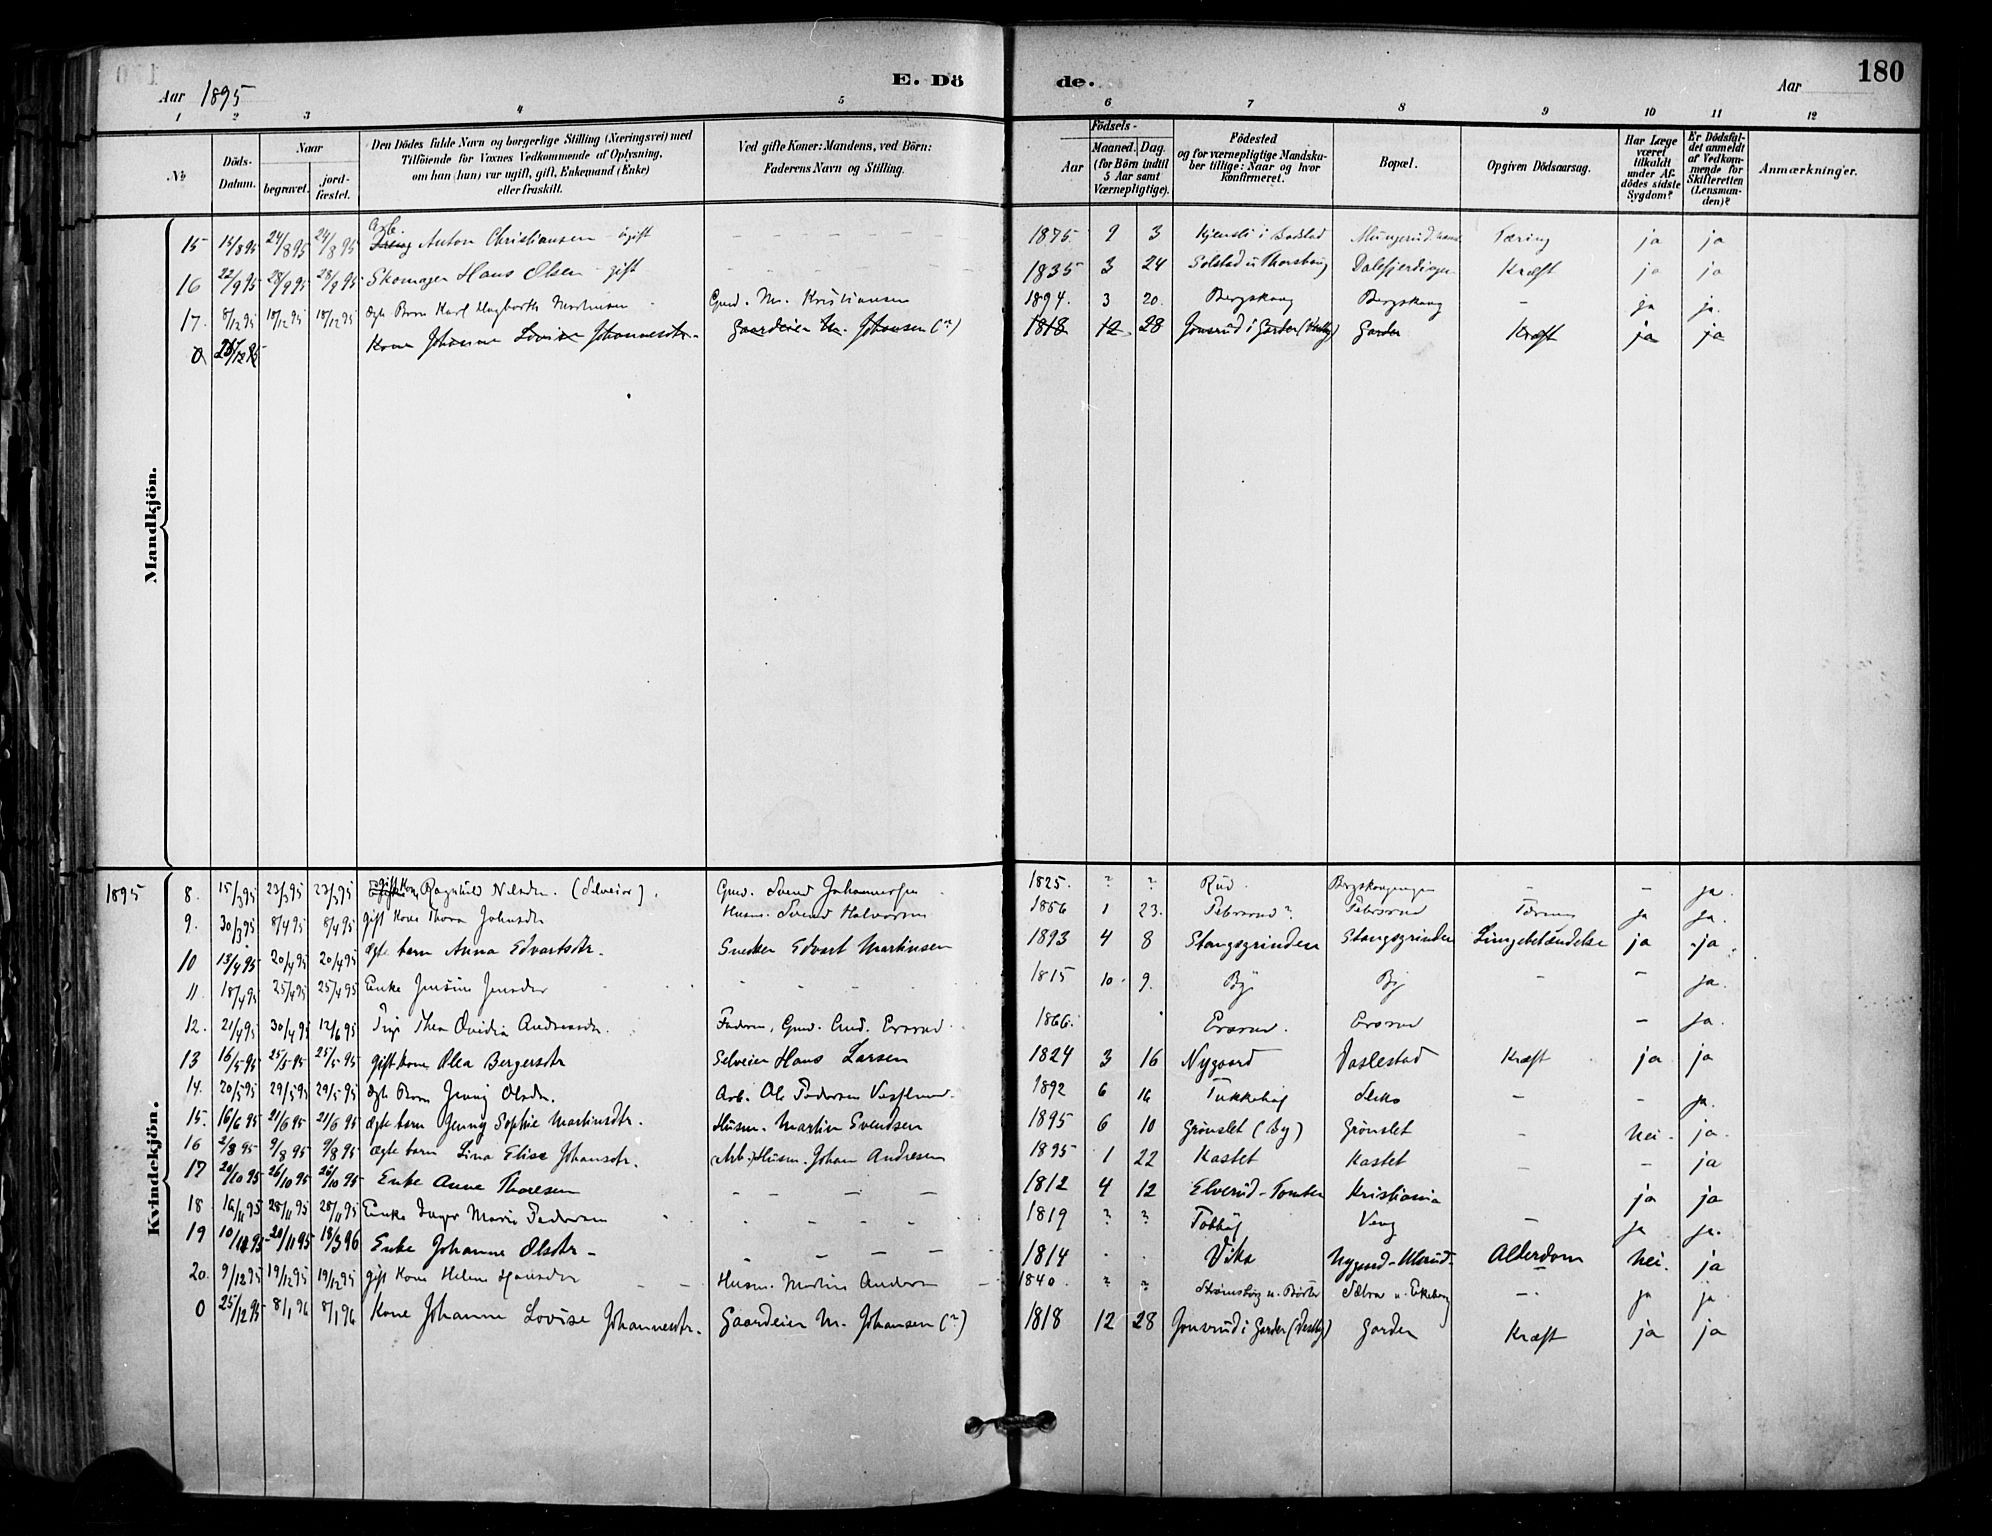 Aar 1895
E. Dö
de.
Aar
180
1 2 3 4 5 6 7 8 9 10 11 12
No
Döds-Datum.
Naar
begravet.
jord-fæstet.
Den Dödes fulde Navn og borgerlige Stilling (Næringsvei) med
Tilföiende for Voxnes Vedkommende af Oplysning,
om han (hun) var ugift, gift, Enkemand (Enke)
eller fraskilt.
Ved gifte Koner: Mandens, ved Börn:
Faderens Navn og Stilling.
Födsels-
Aar
Maaned. Dag.
(for Börn indtil
5 Aar samt
Værnepligtige).
Födested
og for værnepligtige Mandska-
ber tillige: Naar og hvor
konfirmeret.
Bopæl.
Opgiven Dödsaarsag.
Har Læge
været
tilkaldt
under Af-
dödes sidste
Sygdom?
Er Dödsfal-
det anmeldt
af Vedkom-
mende for
Skifteretten
(Lensman-
den)?
Anmærkninger.
Mandkjön.
15 15/8 95 24/8 95 24/8 95 Anton Christiansen ugift 1875 9 3 Tæring ja ja
16 22/9 95 28/9 95 28/9 95 Skomager Hans Olsen gift 1835 3 24 Solstad u Thorsbæg Dalefjerdingen Kræft ja ja
17. 8/12 95 18/12 95 18/12 95 ægte Barn Karl Martinsen Gmd. M. Kristiansen 1894. 3 20. Bergskaug Bergskaug - ja ja.
0 25/12 95 Kone Johanne Lovise Johannesdtr. Gaardeier M. Johansen (?) 1818 12 28 Jonsrud i Garder (Vestby) Garder Kræft ja ja
Kvindekjön.
1895 8. 15/3 95 23/3 95 23/3 95 gift Kone Ragnhild Nilsdtr. (Selveier). Gmd. Svend Johannessen 1825. ? ? Rud. - - ja.
9. 30/3 95 8/4 95 8/4 95 gift Kone Thora Johnsdtr Husm. Svend Halvorsen 1856 1 23. ja ja.
10 13/4 95 20/4 95 20/4 95 ægte barn Anna Edvartsdtr. Snedker Edvart Martinsen 1893 4 8 Stangsgrinden Stangsgrinden Lungebetændelse ja ja
11. 18/4 95 25/4 95 25/4 95 Enke Jensdtr 1815 10 9. By By - - ja.
12. 21/4 95 30/4 95 12/6 95 Pige Thea Ovidia Andreasdtr. Faderen, Gmd. And. 1866. - ja.
13 16/5 95 25/5 95 25/5 95 gift kone Olea Bergersdtr Selveier Hans Larsen 1824 3 16 Nygaard Vaslestad Kræft ja ja
14. 20/5 95 29/5 95 29/5 95 ægte Barn Jenny Olsdtr. Arb. Ole Pedersen 1892 6 16 - - ja.
15. 16/6 95 21/6 95 21/6 95 ægte barn Jenny Sophie Martinsdtr. Husm. Martin Svendsen 1895 6 10 Grönslet (By) Grönslet - Nei. ja.
16 2/8 95 9/8 95 9/8 95 ægte barn Lina Elise Johansdtr. (Arb.) Husm. Johan Andresen 1895 1 22 Kastet Kastet - - ja
17 20/10 95 26/10 95 26/10 95 Enke Anne Thoresen - - - - 1812 4 12 Elverud-Tomter Kristiania ja ja
18 16/11 95 28/11 95 28/11 95 Enke Inger Marie Pedersen 1819 ? ? Veng - ja ja.
19 10/11 95 20/11 95 18/3 96 Enke Johanne Olsdtr - 1814 Vika Nygaard- Alderdom Nei. ja
20. 9/12 95 19/12 95 19/12 95 gift Kone Helene Hansdtr Husm. Martin Anders 1840. ? ? - ja ja
0 25/12 95 8/1 96 8/1 96 Kone Johanne Lovise Johannesdtr. Gaardeier M. Johansen (?) 1818 12 28 Jonsrud i Garder (Vestby) Garder Kræft ja ja